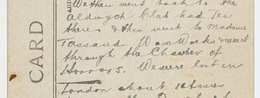 CARD
We then went back to the
Aldwych Club had tea
there & then went to Madame
Tussaud Wax Works & went
through the Chamber of
Horrors. We were lost in
London about 10 times